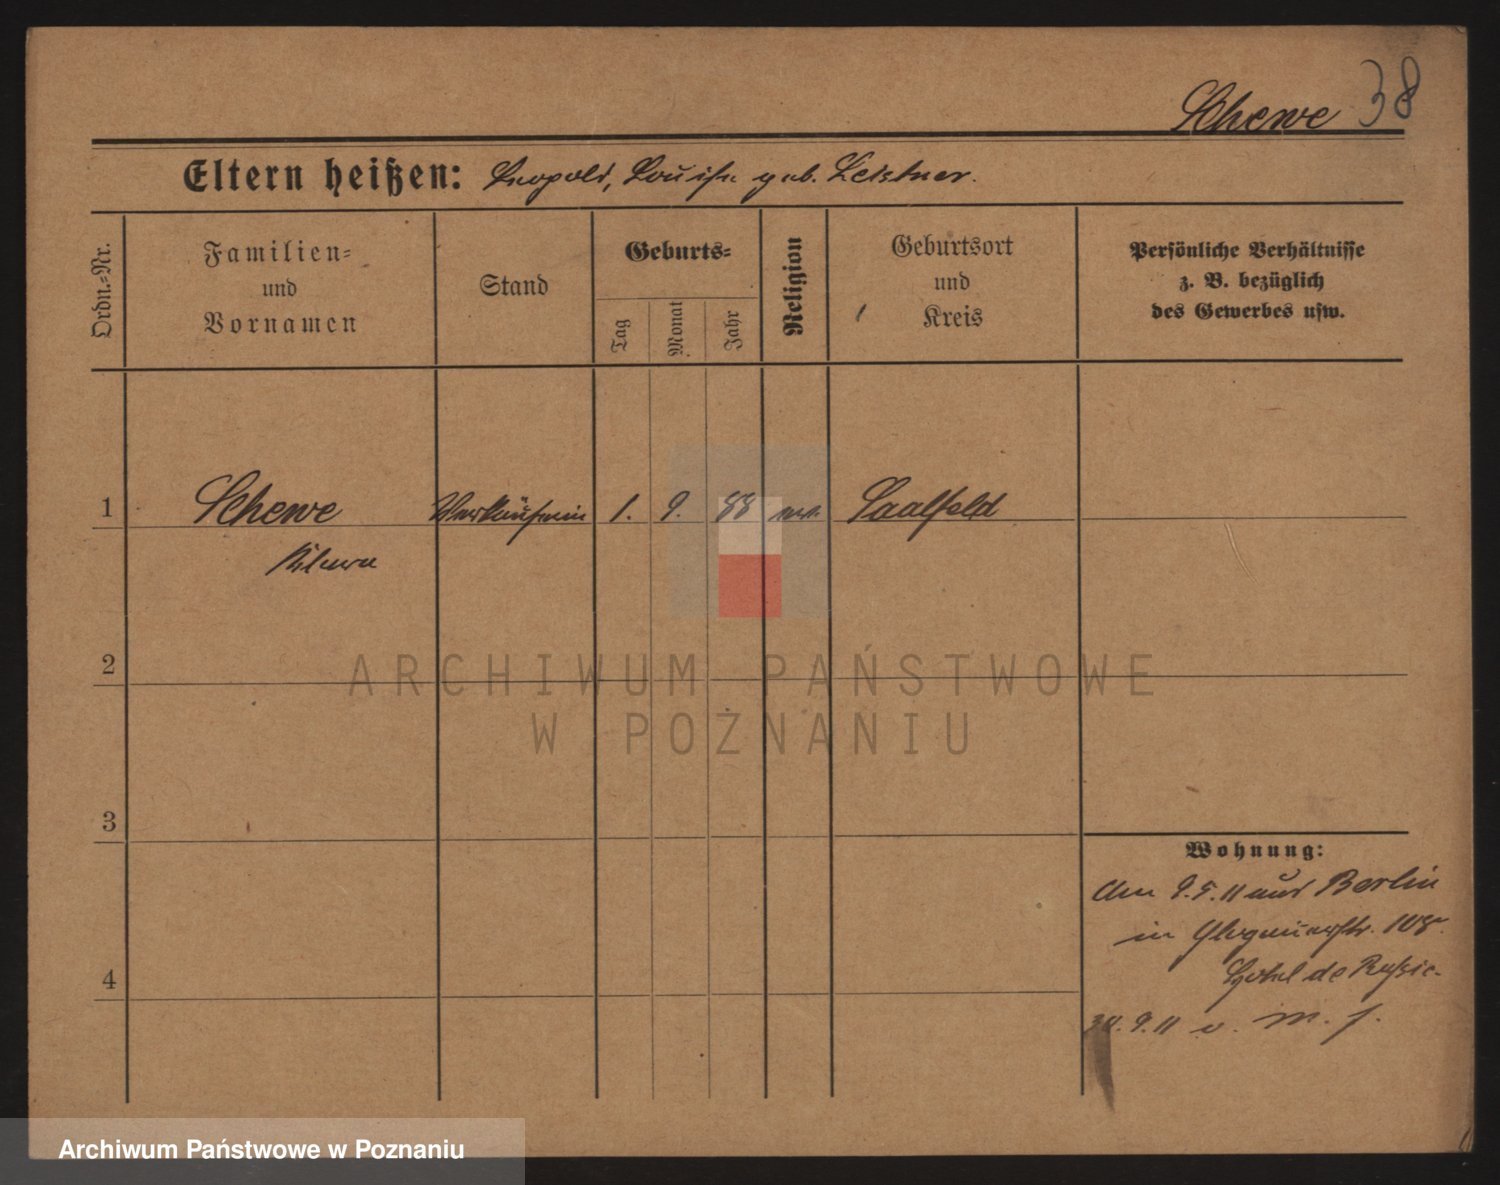 Schewe 38
Eltern heißen: Leopold, Louise geb. Leistner.
Ordn.-Nr.
Familien-
und
Vornamen
Stand
Geburts-
Tag
Monat
Jahr
Religion
Geburtsort
und
Kreis
Persönliche Verhältnisse
z. B. bezüglich
des Gewerbes usw.
1 Schewe Verkäuferin 1. 9. 88 ev. Saalfeld
2
3
4
Wohnung:
Am 9.5.11 aus Berlin
in Glogauerstr. 108
Hotel de Russie.
30.9.11 v. M. f.
ARCHIWUM PAŃSTWOWE
W POZNANIU
Archiwum Państwowe w Poznaniu